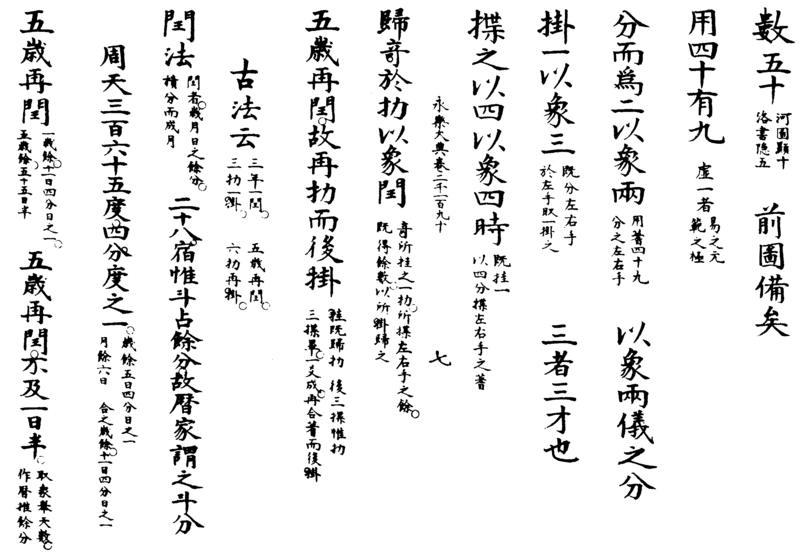 數五十 河圖顯十 洛書隱五 前圖備矣
用四十有九 虛一者易之元 範之極
分而爲二以象兩 用蓍四十九 分之左右手 以象兩儀之分
掛一以象三 既分左右手 於左手取一掛之 三者三才也
揲之以四以象四時 既挂一 以四分揲左右手之蓍
永樂大典卷二千一百九十 七
歸奇於扐以象閏 奇所挂之一扐所揲左右手之餘 既得餘數以所掛歸之
五歲再閏故再扐而後掛 挂既歸扐 後三揲惟扐 三揲畢一爻成再合蓍而後掛
古法云 三年一閏 三扐一掛 五歲再閏 六扐再掛
閏法 閏者歲月日之餘分 積分而成月 二十八宿惟斗占餘分故曆家謂之斗分
周天三百六十五度四分度之一 歲餘五日四分日之一 月餘六日 合之歲餘十一日四分日之一
五歲再閏 一歲餘十一日四分日之一 五歲餘五十五日半 五歲再閏不及一日半 取象舉天數 作曆推餘分